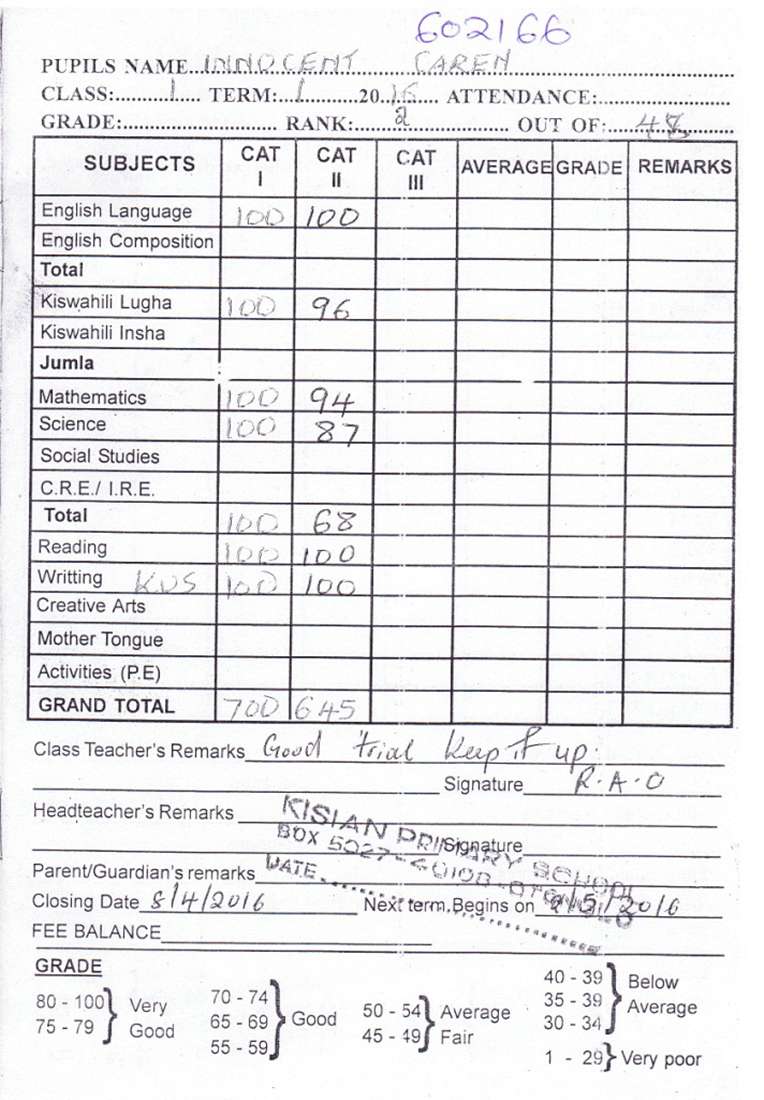 602166
PUPILS NAME..INNOCENT CAREN
CLASS:..1.. TERM:..1..2016.. ATTENDANCE:..
GRADE:.. RANK:..2.. OUT OF:..
SUBJECTS CAT I CAT II CAT III AVERAGE GRADE REMARKS
English Language 100 100
English Composition
Total
Kiswahili Lugha 100 96
Kiswahili Insha
Jumla
Mathematics 100 94
Science 100 87
Social Studies
C.R.E./ I.R.E.
Total 100 68
Reading 100 100
Writting KUS 100 100
Creative Arts
Mother Tongue
Activities (P.E)
GRAND TOTAL 700 645
Class Teacher's Remarks Good trial keep it up.
Signature R.A.O
Headteacher's Remarks
Signature
KISIAN PRIMARY SCHOOL
BOX 5027-40108-
DATE
Parent/Guardian's remarks
Closing Date 8/4/2016 Next term Begins on 2/5/2016
FEE BALANCE
GRADE
80 - 100 75 - 79 } Very Good
70 - 74 65 - 69 55 - 59 } Good
50 - 54 45 - 49 } Average Fair
40 - 39 35 - 39 30 - 34 } Below Average
1 - 29 } Very poor